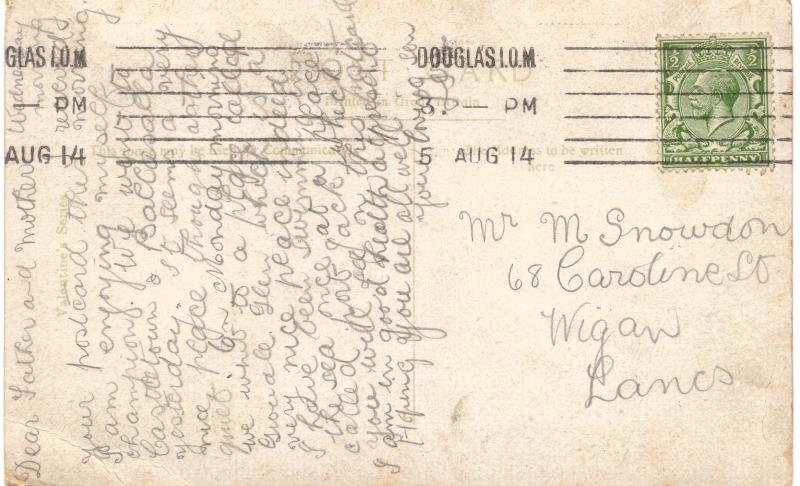 POST CARD
Printed in Great Britain
This space may be used for Communication
The Address to be written
here
Valentine's Series
GLAS I.O.M
PM
AUG 14
DOUGLAS I.O.M
3. — PM
5 AUG 14
HALFPENNY
Mr M Snowdon
68 Caroline St
Wigan
Lancs
Dear Father a-d Mother
Your postcard
received
this morning
I am enjoying myself
champion. We went to
Castletown &
yesterday. It seems a very
nice place though rather
quiet. On Monday morning
we went to a place called
Groudle Glen which is a
very nice place indeed.
I have been swimming in
the sea once at a place
called Port Jack the
you will
I am in good health at present
Hoping you are all well
your loving son